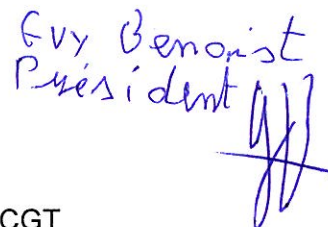 Guy Benoist
Président
CGT